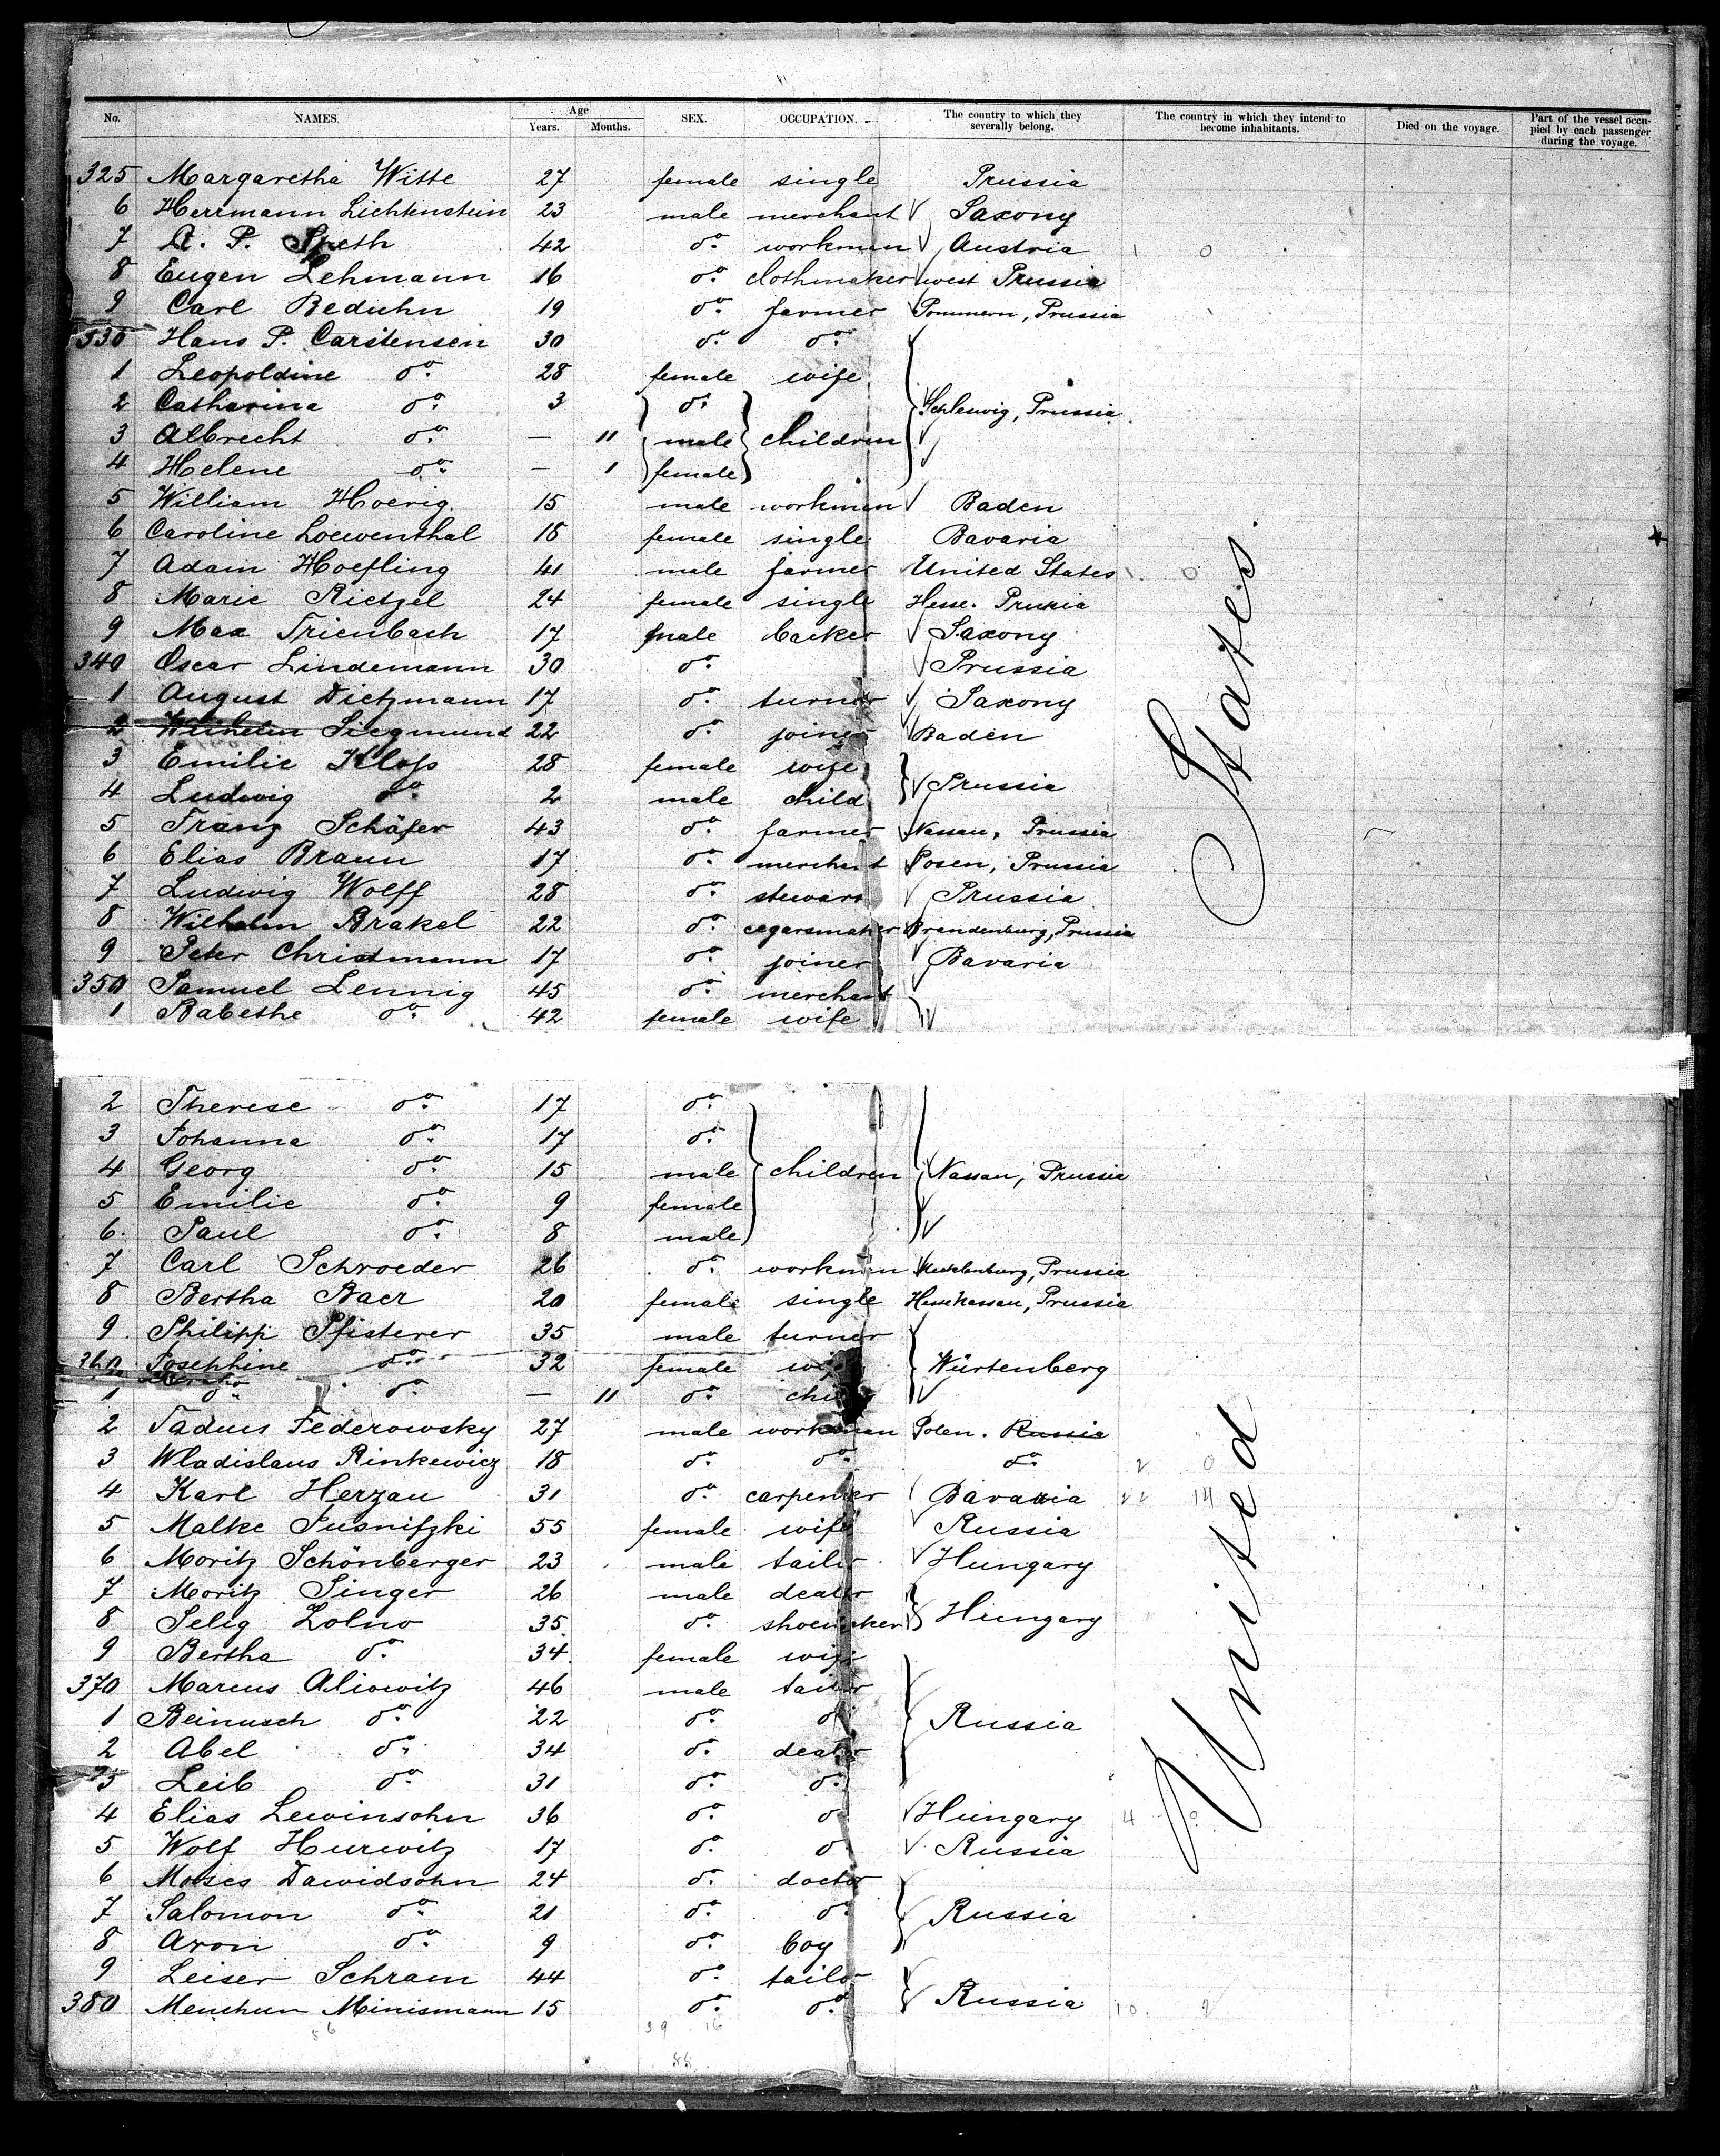 No. NAMES. Age Years. Months. SEX. OCCUPATION. The country to which they severally belong. The country in which they intend to become inhabitants. Died on the voyage. Part of the vessel occupied by each passenger during the voyage.
325 Margaretha Witte 27 female single Prussia
6 Herrmann Lichtenstein 23 male merchant Saxony
7 A. P. Speth 42 do. workman Austria 1 0
8 Eugen Lehmann 16 do. clothmaker west Prussia
9 Carl Beduhn 19 do. farmer Pommern, Prussia
330 Hans P. Carstensen 30 do. do.
1 Leopoldine do. 28 female wife
2 Catharina do. 3 do. Schleswig, Prussia
3 Albrecht do. — 11 male children
4 Helene do. — 1 female
5 William Hoerig 15 male workman Baden
6 Caroline Loewenthal 18 female single Bavaria
7 Adam Hoefling 41 male farmer United States 1 0
8 Marie Rietzel 24 female single Hesse. Prussia
9 Max Trienbach 17 male backer Saxony
340 Oscar Lindemann 30 do. Prussia
1 August Dietzmann 17 do. turner Saxony
2 Wilhelm Siegmund 22 do. joiner Baden
3 Emilie Kloss 28 female wife
4 Ludwig do. 2 male child Prussia
5 Franz Schäfer 43 do. farmer Nassau, Prussia
6 Elias Braun 17 do. merchant Posen, Prussia
7 Ludwig Wolff 28 do. steward Prussia
8 Wilhelm Brakel 22 do. cegarsmaker Brandenburg, Prussia
9 Peter Christmann 17 do. joiner Bavaria
350 Samuel Lennig 45 do. merchant
1 Babethe do. 42 female wife
2 Therese do. 17 do.
3 Johanna do. 17 do.
4 Georg do. 15 male children Nassau, Prussia
5 Emilie do. 9 female
6 Paul do. 8 male
7 Carl Schroeder 26 do. workman Mecklenburg, Prussia
8 Bertha Baer 20 female single Hesse Nassau, Prussia
9 Philipp Pfisterer 35 male turner
360 Josephine do. 32 female wife Würtenberg
1 do. do. — 11 do. child
2 Tadeus Federowsky 27 male workman Polen. Russia
3 Wladislaus Rinkewicz 18 do. do. do. 2 0
4 Karl Herzau 31 do. carpenter Bavaria 22 14
5 Malke Susnitzki 55 female wife Russia
6 Moritz Schönberger 23 male tailor Hungary
7 Moritz Singer 26 male dealer
8 Selig Zolno 35 do. shoemaker Hungary
9 Bertha do. 34 female wife
370 Marcus Aliowitz 46 male tailor
1 Beinusch do. 22 do. do. Russia
2 Abel do. 34 do. dealer
3 Leib do. 31 do. do.
4 Elias Lewinsohn 36 do. do. Hungary 4 0
5 Wolf Hurwitz 17 do. do. Russia
6 Moses Dawidsohn 24 do. doctor
7 Salomon do. 21 do. do. Russia
8 Aron do. 9 do. boy
9 Leiser Schram 44 do. tailor
380 Menchun Minismann 15 do. do. Russia 10 2
56 39 16
55
United States.